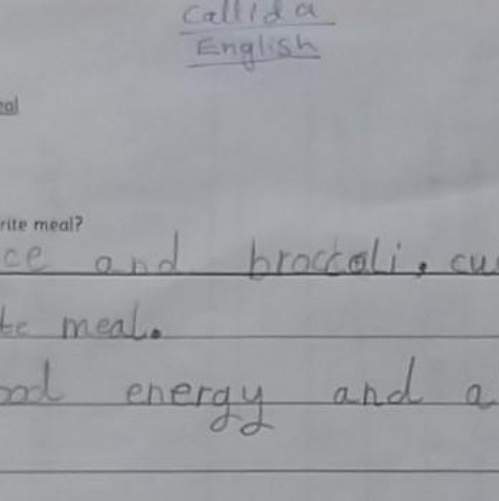 Callida
English
eal
rite meal?
ce and broccoli. cu
te meal.
ood energy and a